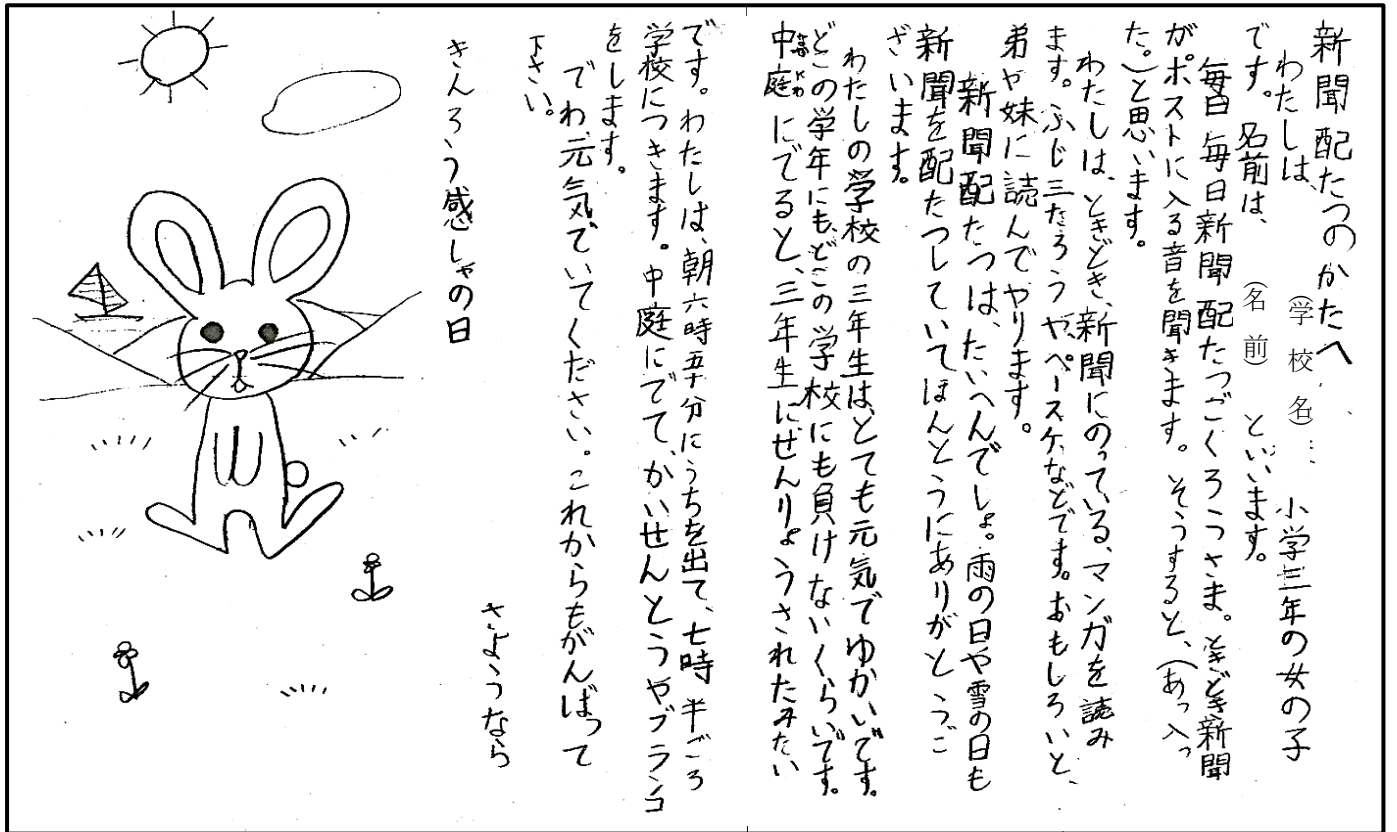 新聞配たつのかたへ
わたしは、(学校名)… 小学三年の女の子
です。名前は、(名前) といいます。
毎日毎日新聞配たつごくろうさま。ときどき新聞
がポストに入る音を聞きます。そうすると、(あっ入っ
た。)と思います。
わたしは、ときどき、新聞にのっている、マンガを読み
ます。ふじ三たろうやペースケなどです。おもしろいと、
弟や妹に読んでやります。
新聞配たつは、たいへんでしょ。雨の日や雪の日も
新聞を配たつしていてほんとうにありがとうご
ざいます。
わたしの学校の三年生は、とても元気でゆかいです。
どこの学年にも、どこの学校にも負けないくらいです。
中庭にでると、三年生にせんりょうされたみたい
です。わたしは、朝六時五十分にうちを出て、七時半ごろ
学校につきます。中庭にでて、かいせんとうやブランコ
をします。
でわ元気でいてください。これからもがんばって
下さい。
さようなら
きんろう感しゃの日